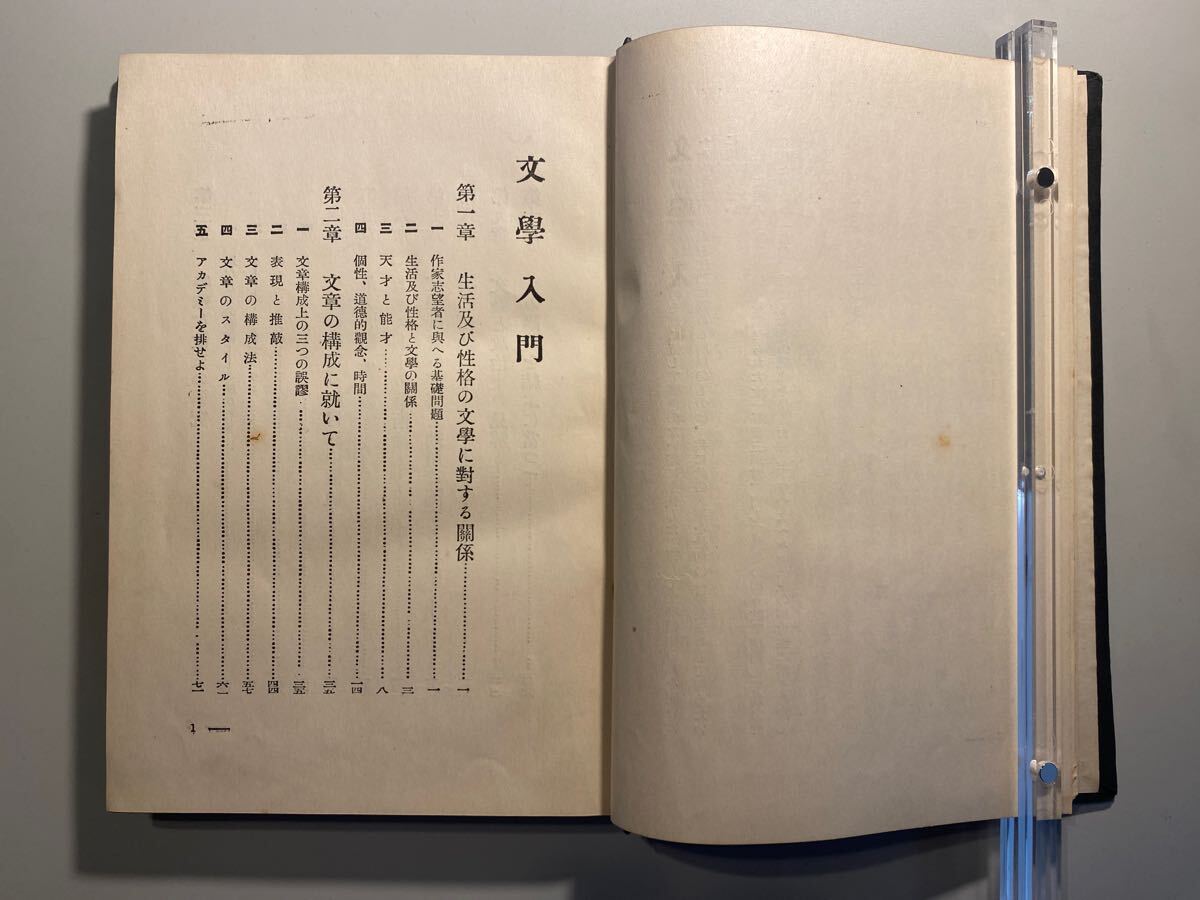 文學入門
第一章 生活及び性格の文學に對する關係……一
一 作家志望者に與へる基礎問題……一
二 生活及び性格と文學の關係……三
三 天才と能才……八
四 個性、道德的觀念、時間……一四
第二章 文章の構成に就いて……三五
一 文章構成上の三つの誤謬……三五
二 表現と推敲……四四
三 文章の構成法……五七
四 文章のスタイル……六二
五 アカデミーを排せよ……七一
1